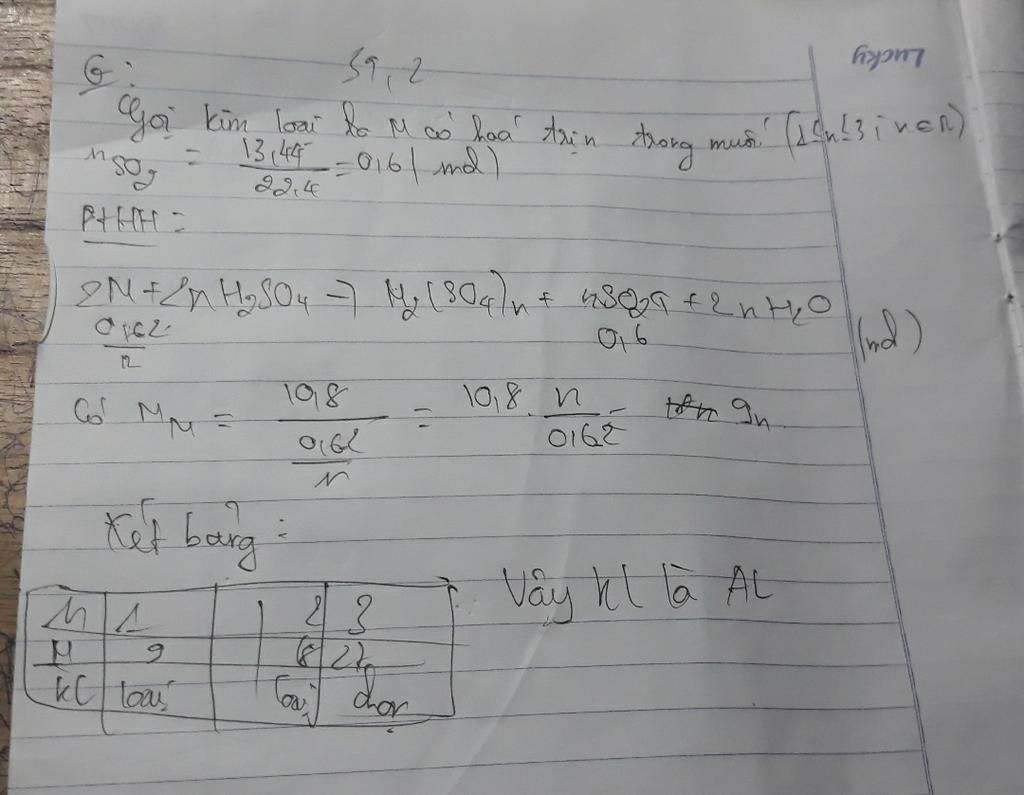 59,2
G:
Gọi kim loại là M có hoá trịn trong muối (1≤n≤3; n∈N)
nSO2 = 13,44/22,4 = 0,6 (mol)
PTHH:
2M + 2nH2SO4 → M2(SO4)n + nSO2↑ + 2nH2O
0,6.2/n 0,6 (mol)
Có MM = 10,8/(0,6.2/n) = 10,8.n/0,6.2 = 9n
Kết bảng:
n 1 2 3
M 9 18 27
KL loại loại chọn
Vậy kl là AL
Lucky